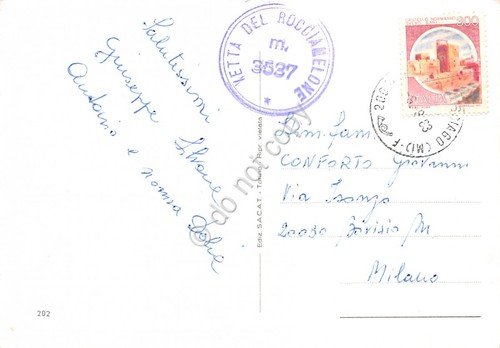 Salutissimi
Giuseppe Silvana
Antonio e nonna Delia
VETTA DEL ROCCIAMELONE
m.
3537
*
300
83
(MI)-F
Gem. Fam.
CONFORTO Giovanni
Via Isonzo
20030 M
Milano
Ediz. S.A.C.A.T. - Torino - Ripr. vietata
202
do not copy